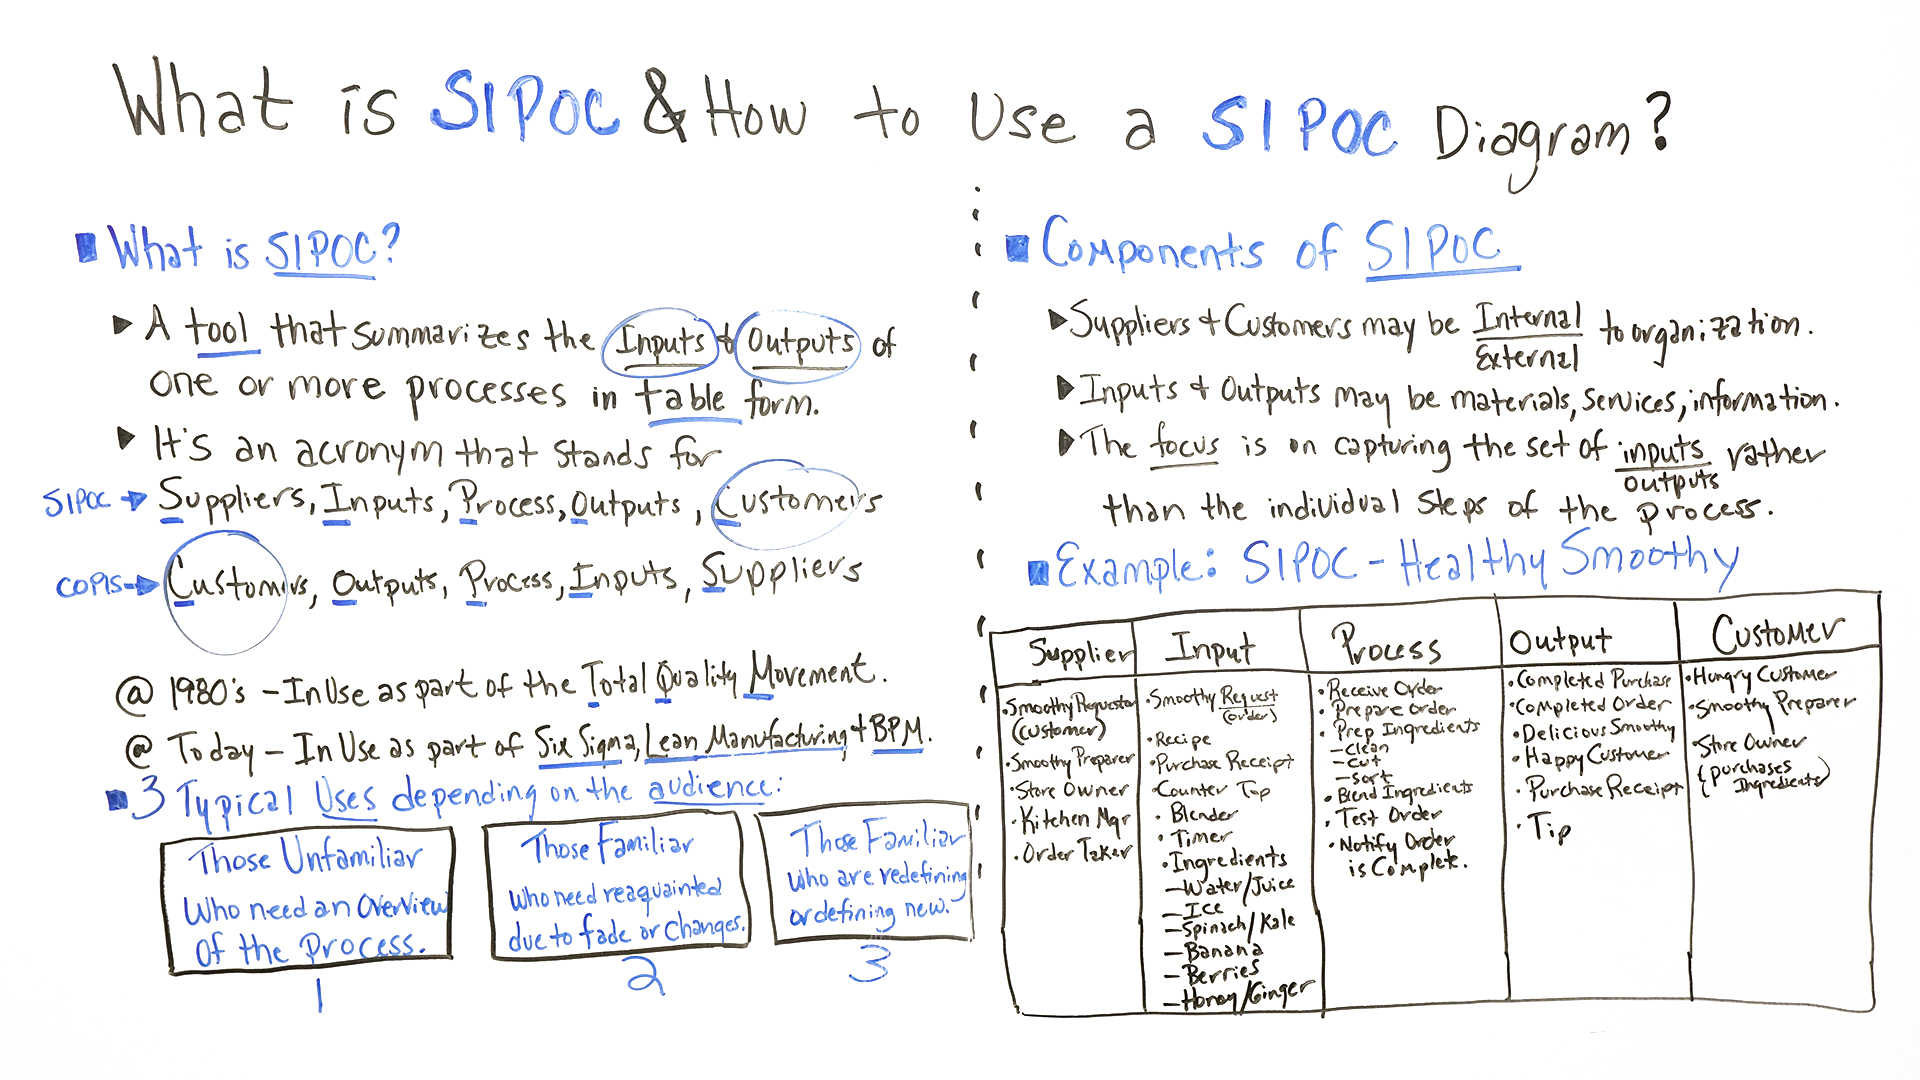 What is SIPOC & How to Use a SIPOC Diagram?
What is SIPOC?
A tool that summarizes the Inputs & Outputs of
one or more processes in table form.
It's an acronym that stands for
SIPOC → Suppliers, Inputs, Process, Outputs, Customers
COPIS → Customers, Outputs, Process, Inputs, Suppliers
@ 1980's – In Use as part of the Total Quality Movement.
@ Today – In Use as part of Six Sigma, Lean Manufacturing & BPM.
3 Typical Uses depending on the audience:
Those Unfamiliar
Who need an Overview
Of the Process.
1
Those Familiar
Who need reaquainted
due to fade or changes.
2
Those Familiar
who are redefining
or defining new.
3
Components of SIPOC
Suppliers & Customers may be Internal
External
to organization.
Inputs & Outputs may be materials, services, information.
The focus is on capturing the set of inputs
outputs
rather
than the individual steps of the process.
Example: SIPOC – Healthy Smoothy
Supplier
• Smoothy Requestor
(customer)
• Smoothy Preparer
• Store Owner
• Kitchen Mgr
• Order Taker
Input
• Smoothy Request
(order)
• Recipe
• Purchase Receipt
• Counter Top
• Blender
• Timer
• Ingredients
– Water/Juice
– Ice
– Spinach/Kale
– Banana
– Berries
– Honey/Ginger
Process
• Receive Order
• Prepare Order
• Prep Ingredients
– Clean
– cut
– sort
• Blend Ingredients
• Test Order
• Notify Order
is Complete.
Output
• Completed Purchase
• Completed Order
• Delicious Smoothy
• Happy Customer
• Purchase Receipt
• Tip
Customer
• Hungry Customer
• Smoothy Preparer
• Store Owner
(purchases
Ingredients)